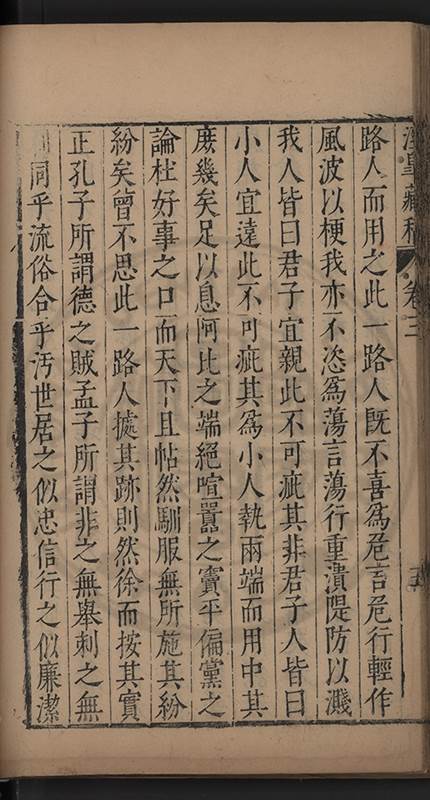 涇皐藏稿 卷三 五
路人而用之此一路人旣不喜爲危言危行輕作
風波以梗我亦不恣爲蕩言蕩行重潰隄防以濺
我人皆曰君子宜親此不可疵其非君子人皆曰
小人宜遠此不可疵其爲小人執兩端而用中其
庶幾矣足以息阿比之端絕喧囂之竇平偏黨之
論杜好事之口而天下且帖然馴服無所施其紛
紛矣曾不思此一路人據其跡則然徐而按其實
正孔子所謂德之賊孟子所謂非之無舉刺之無
同乎流俗合乎汚世居之似忠信行之似廉潔